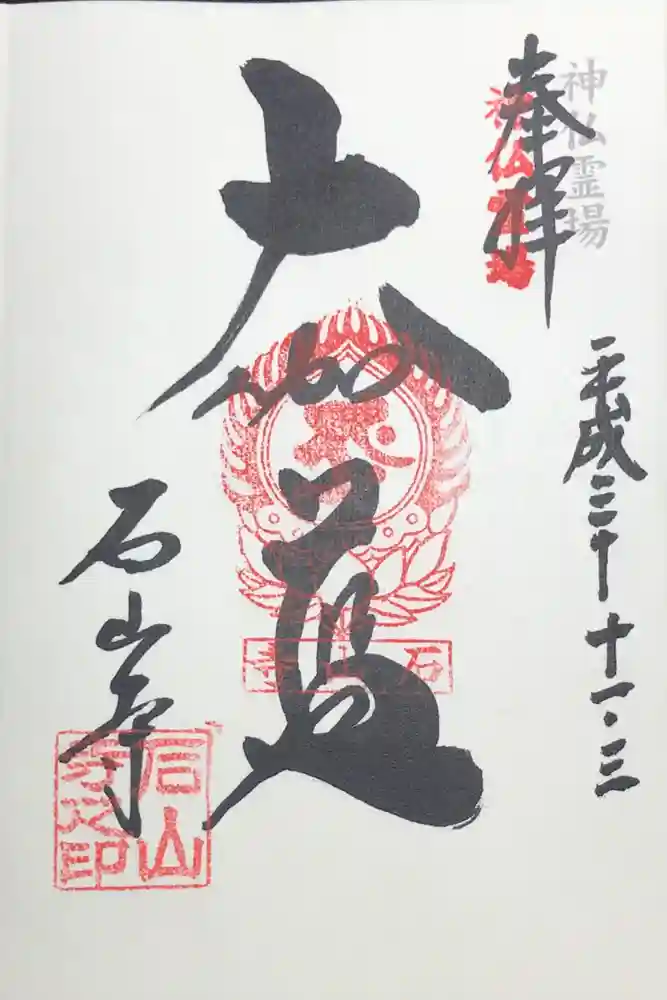 神仏霊場
神仏霊場
奉拝
平成三十 十一・三
大伽藍
石山寺
石山寺
石山
寺之印